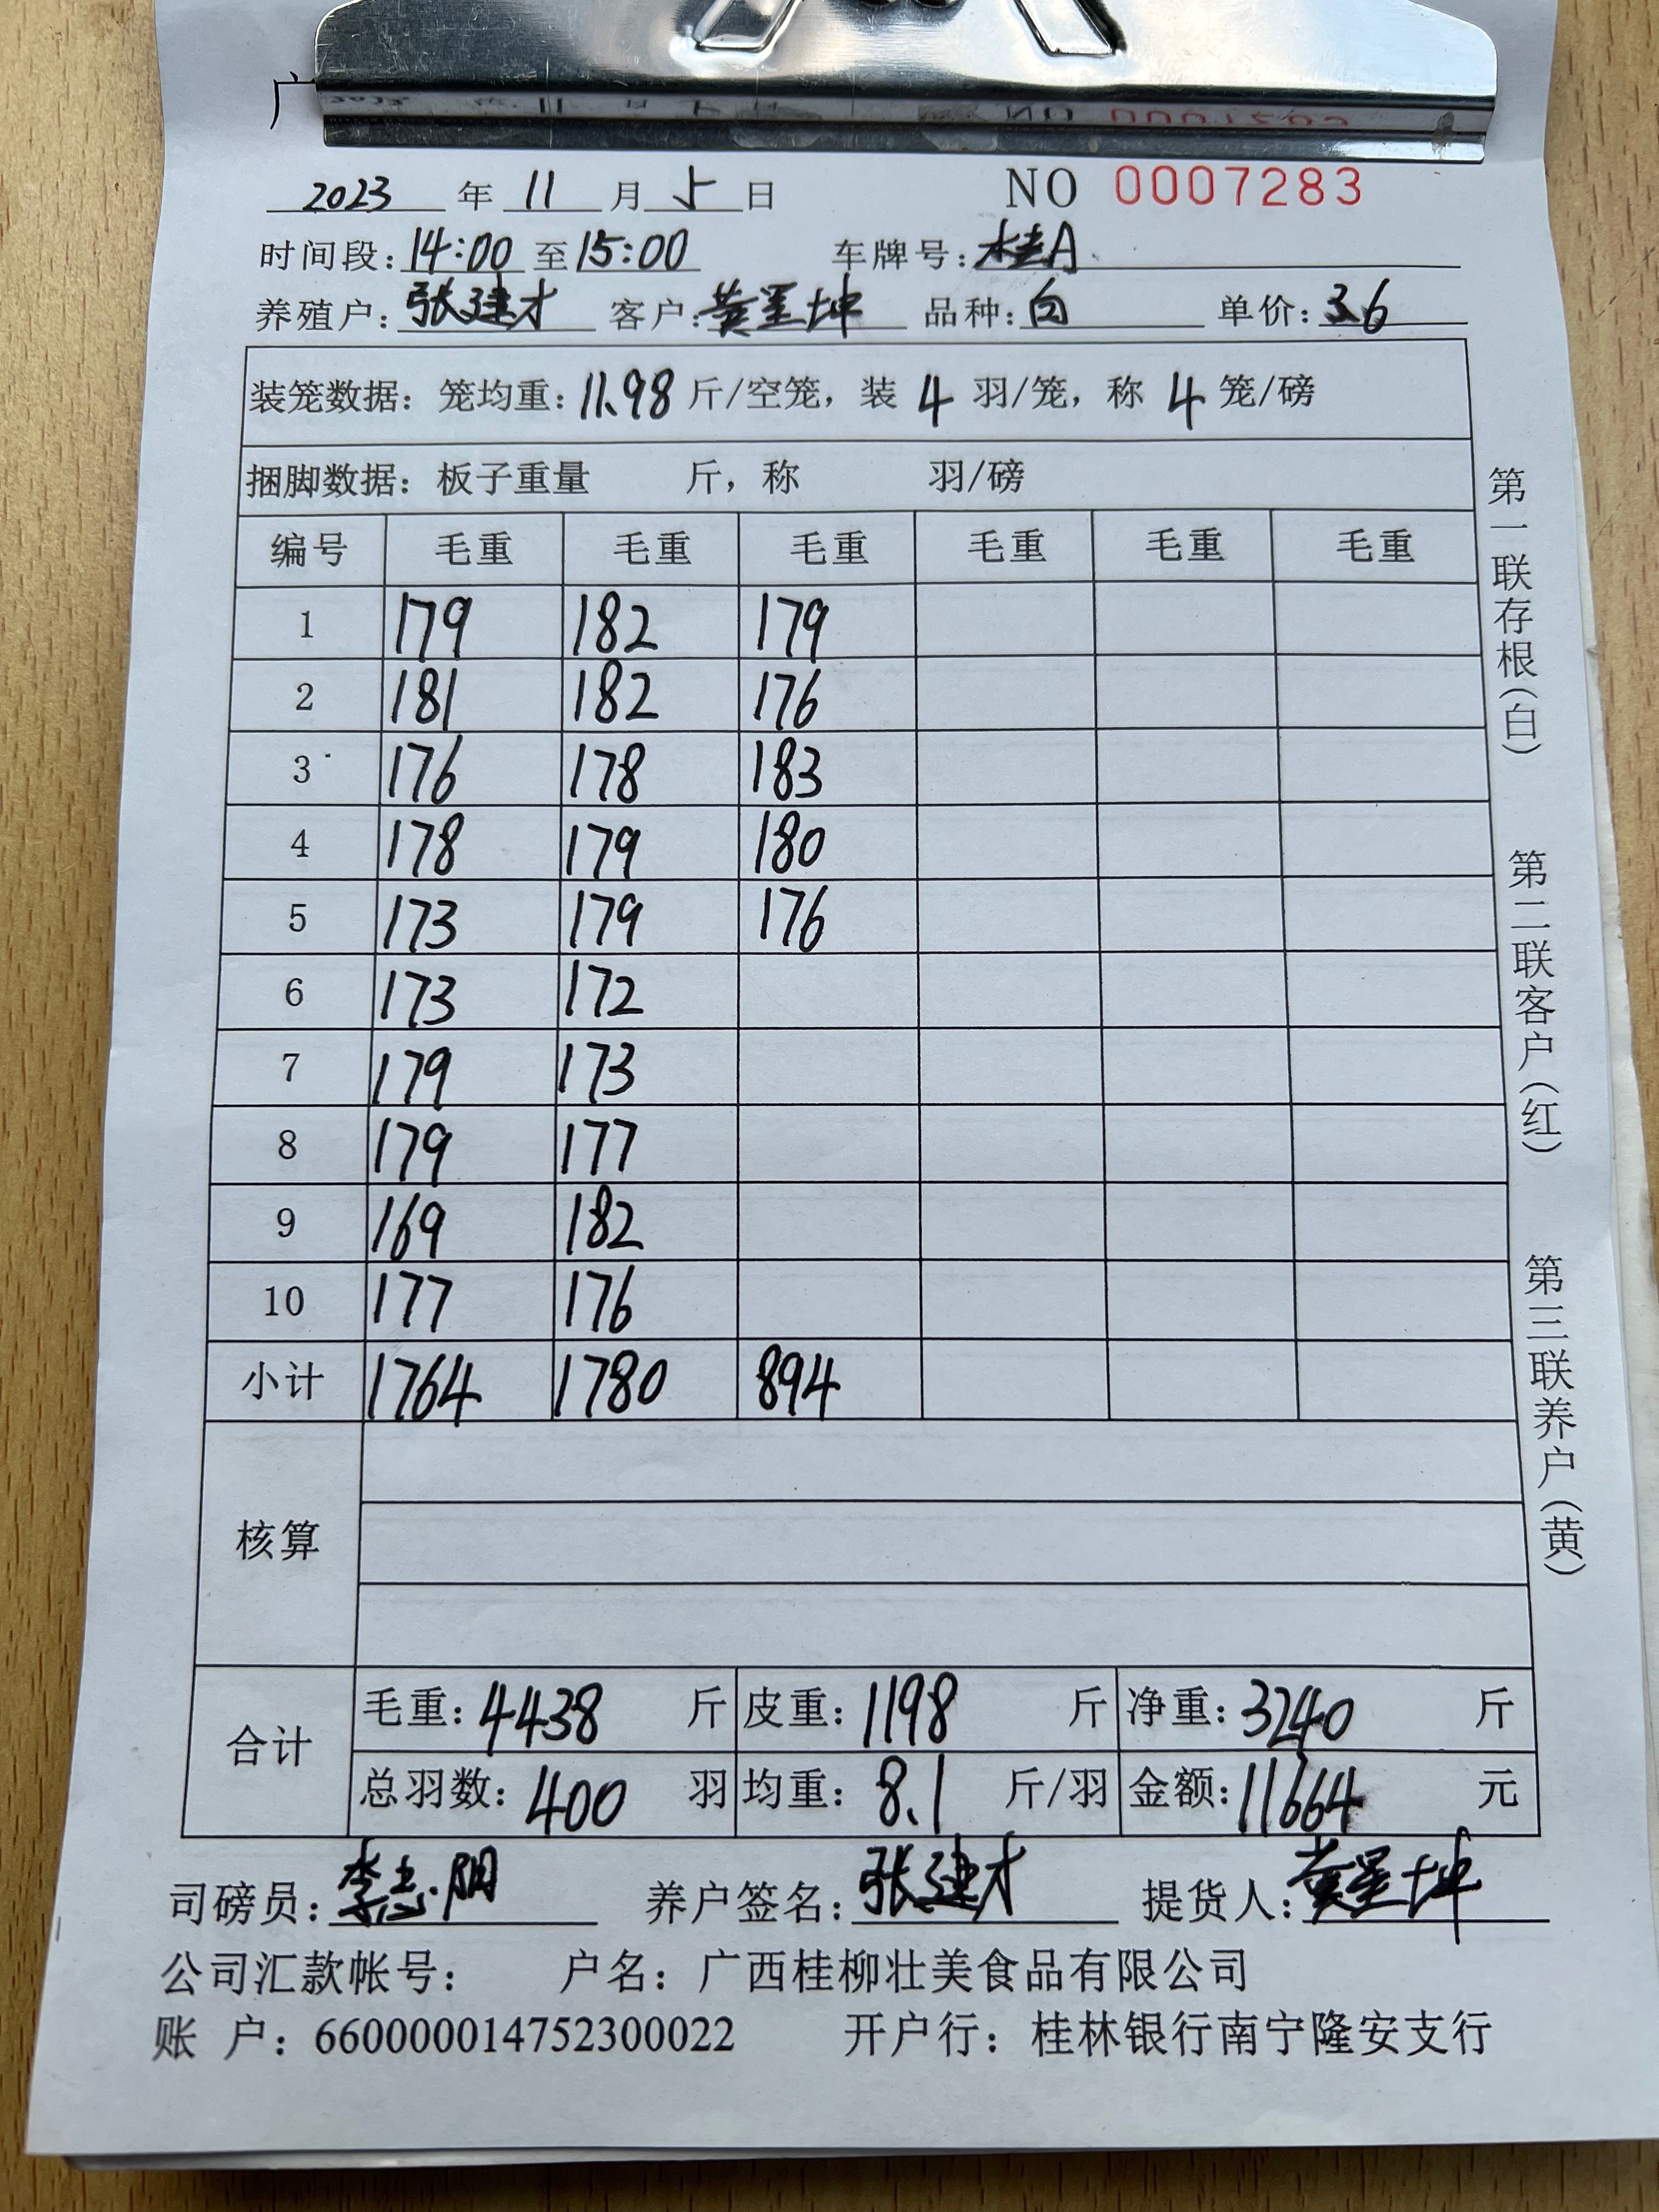 广
2023 年 11 月 5 日 NO 0007283
时间段: 14:00 至 15:00 车牌号: 桂A
养殖户: 张建才 客户: 黄星坤 品种: 白 单价: 3.6
装笼数据: 笼均重: 11.98 斤/空笼, 装 4 羽/笼, 称 4 笼/磅
捆脚数据: 板子重量 斤, 称 羽/磅
编号 毛重 毛重 毛重 毛重 毛重 毛重
1 179 182 179
2 181 182 176
3 176 178 183
4 178 179 180
5 173 179 176
6 173 172
7 179 173
8 179 177
9 169 182
10 177 176
小计 1764 1780 894
核算
合计
毛重: 4438 斤 皮重: 1198 斤 净重: 3240 斤
总羽数: 400 羽 均重: 8.1 斤/羽 金额: 11664 元
司磅员: 李志阳 养户签名: 张建才 提货人: 黄星坤
公司汇款帐号: 户名: 广西桂柳壮美食品有限公司
账 户: 660000014752300022 开户行: 桂林银行南宁隆安支行
第一联存根(白)
第二联客户(红)
第三联养户(黄)